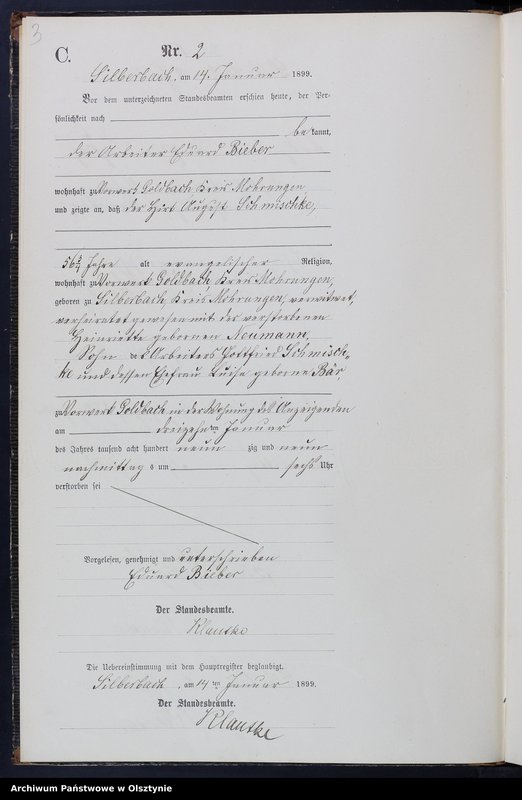 3
C.
Nr. 2
Silberbach, am 14. Januar 1899.
Vor dem unterzeichneten Standesbeamten erschien heute, der Per-
sönlichkeit nach
be kannt,
der Arbeiter Eduard Bieber
wohnhaft zu Vorwerk Goldbach Kreis Mohrungen
und zeigte an, daß der Hirt August Schmischke,
56 Jahre alt evangelischer Religion,
wohnhaft zu Vorwerk Goldbach Kreis Mohrungen,
geboren zu Silberbach Kreis Mohrungen, verwitwet,
verheiratet gewesen mit der verstorbenen
Heinriette gebornen Neumann,
Sohn des Arbeiters Gottfried Schmisch-
ke und dessen Ehefrau Luise geborne Bär
zu Vorwerk Goldbach in der Wohnung des Anzeigenden
am dreizehnten Januar
des Jahres tausend acht hundert neun zig und neun
nachmittags um sechs Uhr
verstorben sei
Vorgelesen, genehmigt und unterschrieben
Eduard Bieber
Der Standesbeamte.
Klautke
Die Uebereinstimmung mit dem Hauptregister beglaubigt.
Silberbach, am 14ten Januar 1899.
Der Standesbeamte.
Klautke
Archiwum Państwowe w Olsztynie